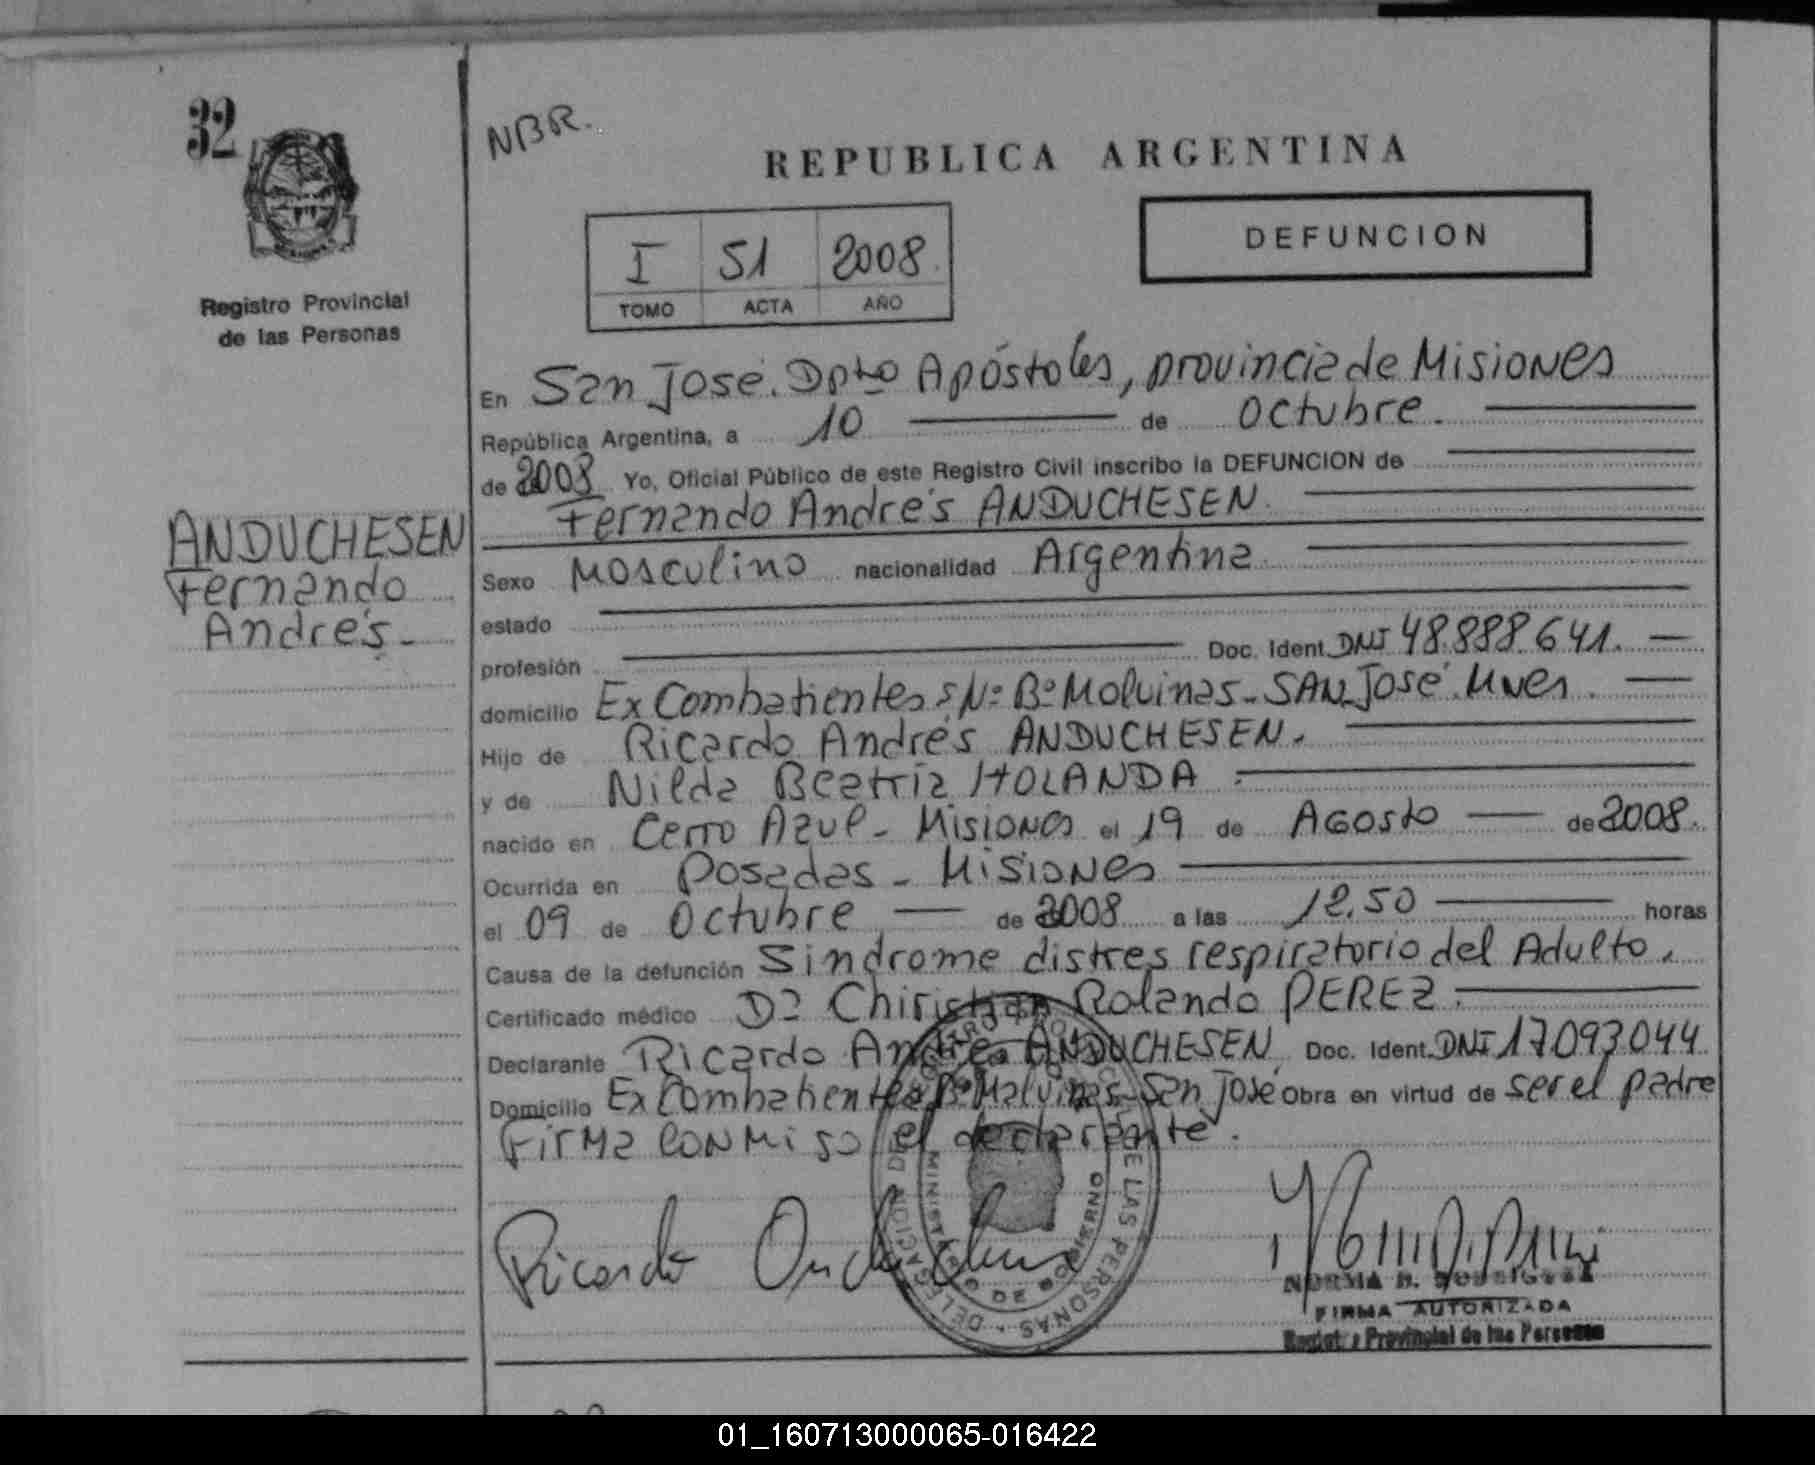 32
NBR.
REPUBLICA ARGENTINA
DEFUNCION
I 51 2008
TOMO ACTA AÑO
Registro Provincial
de las Personas
ANDUCHESEN
Fernando
Andrés-
En San José. Dpto Apóstoles, provincia de Misiones
República Argentina, a 10 de Octubre.
de 2008 Yo, Oficial Público de este Registro Civil inscribo la DEFUNCION de
Fernando Andrés ANDUCHESEN.
Sexo Masculino nacionalidad Argentina
estado
profesión Doc. Ident. DNI 48.888.641.
domicilio Ex Combatientes S/Nº Bº Malvinas - SAN José. Mnes.
Hijo de Ricardo Andrés ANDUCHESEN.
y de Nilda Beatríz HOLANDA.
nacido en Cerro Azul - Misiones el 19 de Agosto de 2008.
Ocurrida en Posadas - Misiones
el 09 de Octubre de 2008 a las 12.50 horas
Causa de la defunción Sindrome distres respiratorio del Adulto.
Certificado médico Dº Chiristian Rolando PEREZ.
Declarante Ricardo Andrés ANDUCHESEN Doc. Ident. DNI 17093044
Domicilio Ex Combatientes Bº Malvinas - San José Obra en virtud de ser el padre
Firma conmigo el declarante.
Ricardo
REGISTRO PROVINCIAL DE LAS PERSONAS - DELEGACION DE
MINISTERIO DE GOBIERNO
NORMA B.
FIRMA AUTORIZADA
Registro Provincial de las Personas
01_160713000065-016422